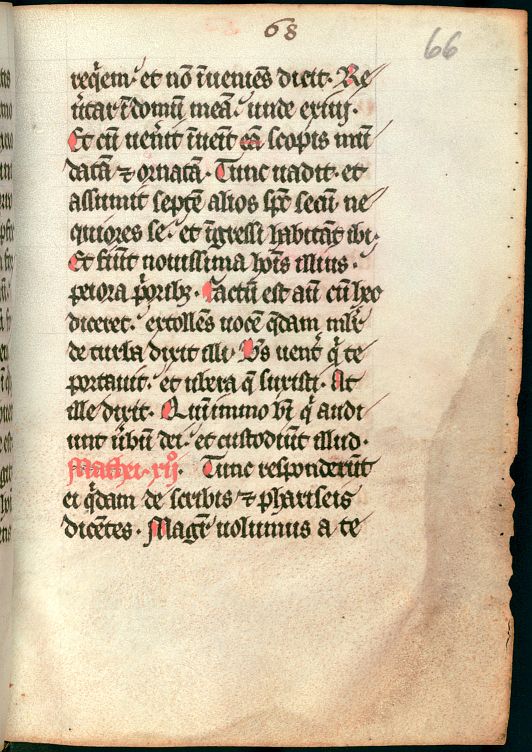 68
66
req̄em· et nō īueniēs dicit· Re
u̾tar ī domū meā· unde exiui·
Et cū uen̾it īuenit eā scopis mū
datā ⁊ ornatā· Tunc uadit· et
assumit septē alios sp̄c secū ne
quiores se· et īgressi habitāt ibi·
Et fiūt nouissima hoīs illius·
peiora p̾orib₃· Factū est aū cū hec
diceret· extollēs uocē q̄dam mlr̄
de turba dixit illi· Bs̄ uent̾ q̄ te
portauit· et ubera q̄ suxisti· At
ille dixit· Quīimmo bī q̄ audi
unt ūbum dei· et custodiūt illud·
Mathei· xijº Tunc responderūt
ei q̄dam de scribis ⁊ phariseis
dicētes· Magr̄ uolumus a te